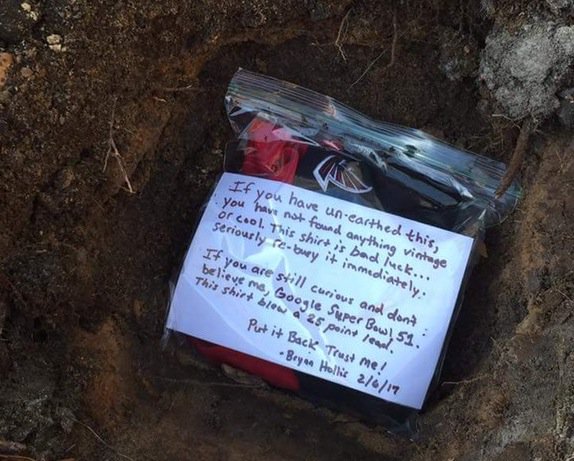 If you have un-earthed this,
you have not found anything vintage
or cool. This shirt is bad luck...
seriously re-bury it immediately.
If you are still curious and don't
believe me, Google Super Bowl 51.
This shirt blew a 25 point lead.
Put it Back Trust me!
- Bryan Hollis 2/6/17